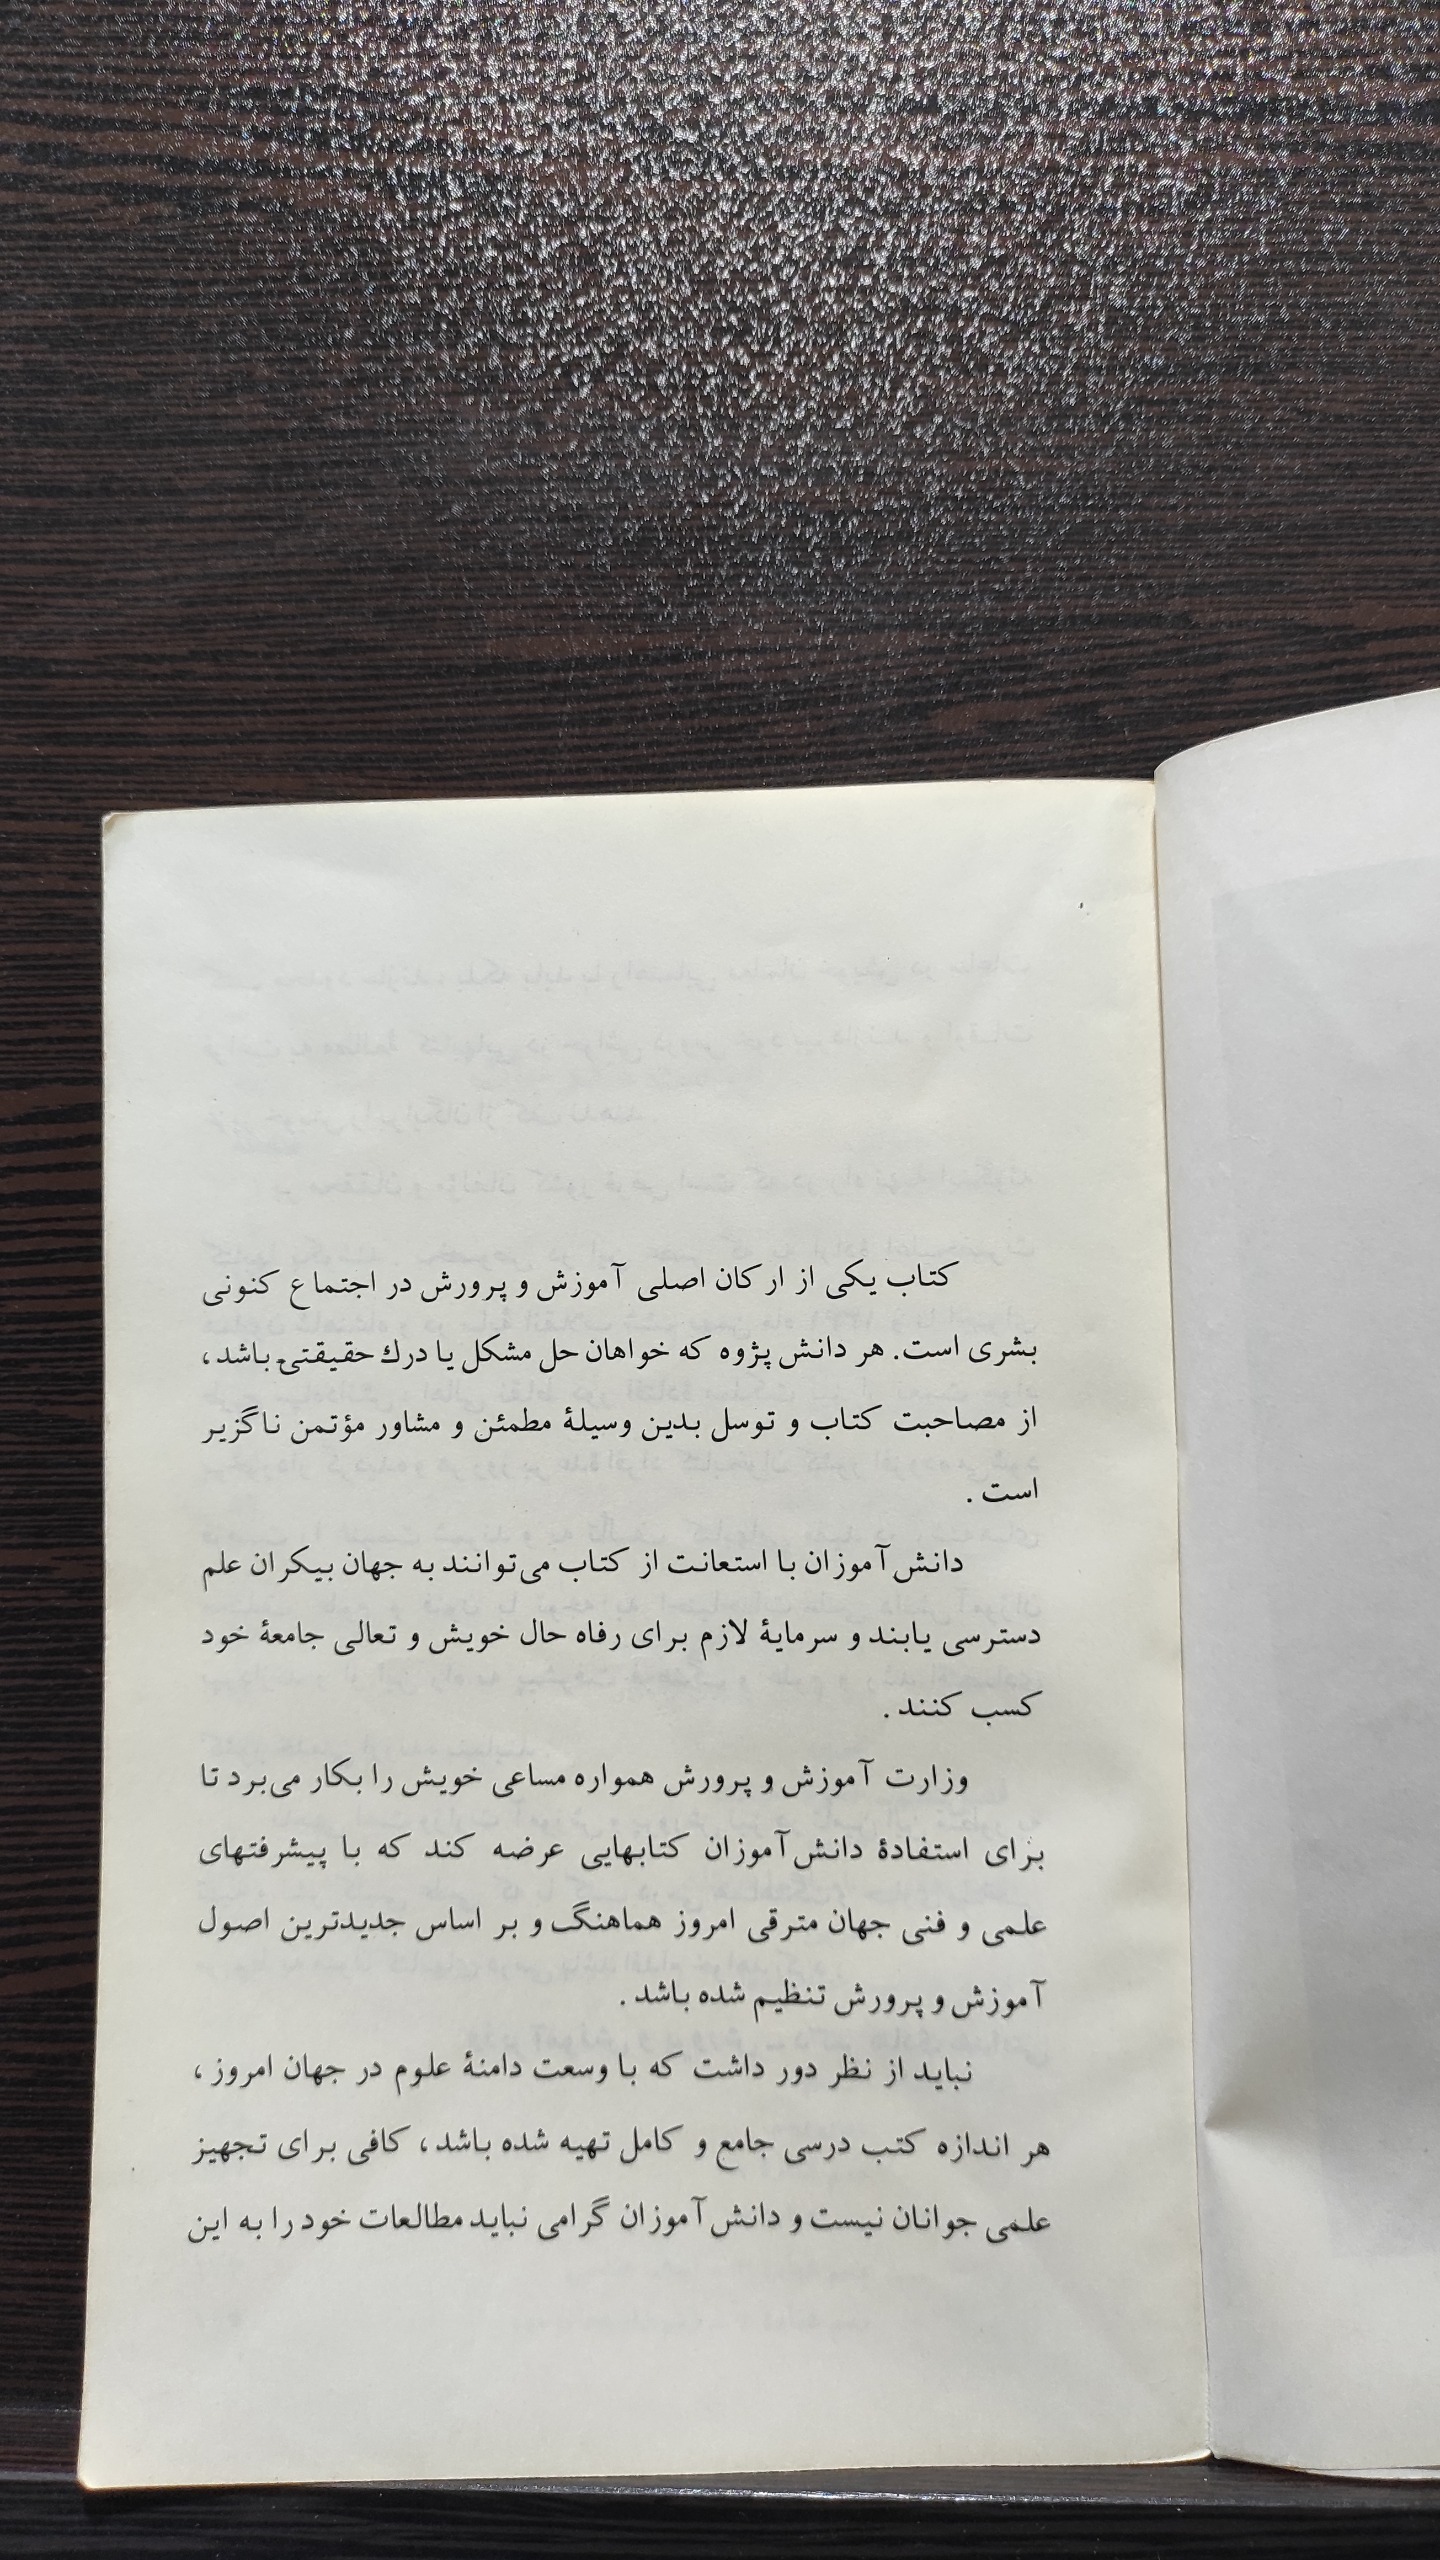 کتاب یکی از ارکان اصلی آموزش و پرورش در اجتماع کنونی
بشری است. هر دانش پژوه که خواهان حل مشکل یا درك حقیقتی باشد،
از مصاحبت کتاب و توسل بدین وسیلهٔ مطمئن و مشاور مؤتمن ناگزیر
است .
دانش‌آموزان با استعانت از کتاب می‌توانند به جهان بیکران علم
دسترسی یابند و سرمایهٔ لازم برای رفاه حال خویش و تعالی جامعهٔ خود
کسب کنند .
وزارت آموزش و پرورش همواره مساعی خویش را بکار می‌برد تا
برای استفادهٔ دانش‌آموزان کتابهایی عرضه کند که با پیشرفتهای
علمی و فنی جهان مترقی امروز هماهنگ و بر اساس جدیدترین اصول
آموزش و پرورش تنظیم شده باشد .
نباید از نظر دور داشت که با وسعت دامنهٔ علوم در جهان امروز ،
هر اندازه کتب درسی جامع و کامل تهیه شده باشد، کافی برای تجهیز
علمی جوانان نیست و دانش‌آموزان گرامی نباید مطالعات خود را به این